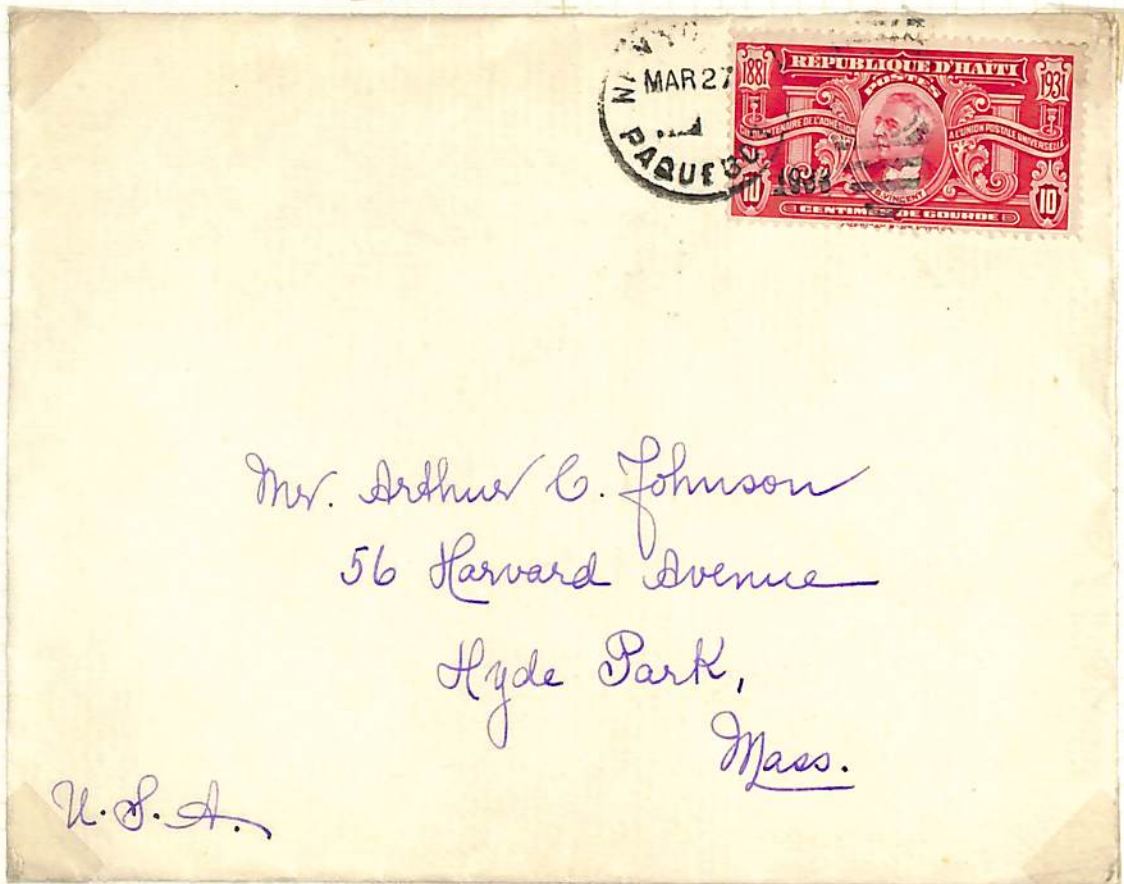 MAR 27
PAQUEBOT
1881 RÉPUBLIQUE D'HAÏTI 1931
POSTES
CINQUANTENAIRE DE L'ADHÉSION A L'UNION POSTALE UNIVERSELLE
S. VINCENT
10 CENTIMES DE GOURDE 10
Mr. Arthur C. Johnson
56 Harvard Avenue
Hyde Park,
Mass.
U.S.A.